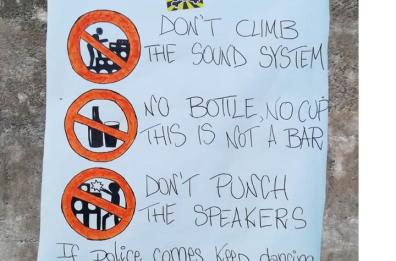 DON'T CLIMB
THE SOUND SYSTEM
NO BOTTLE, NO CUP
THIS IS NOT A BAR
DON'T PUNCH
THE SPEAKERS
If Police comes Keep dancing